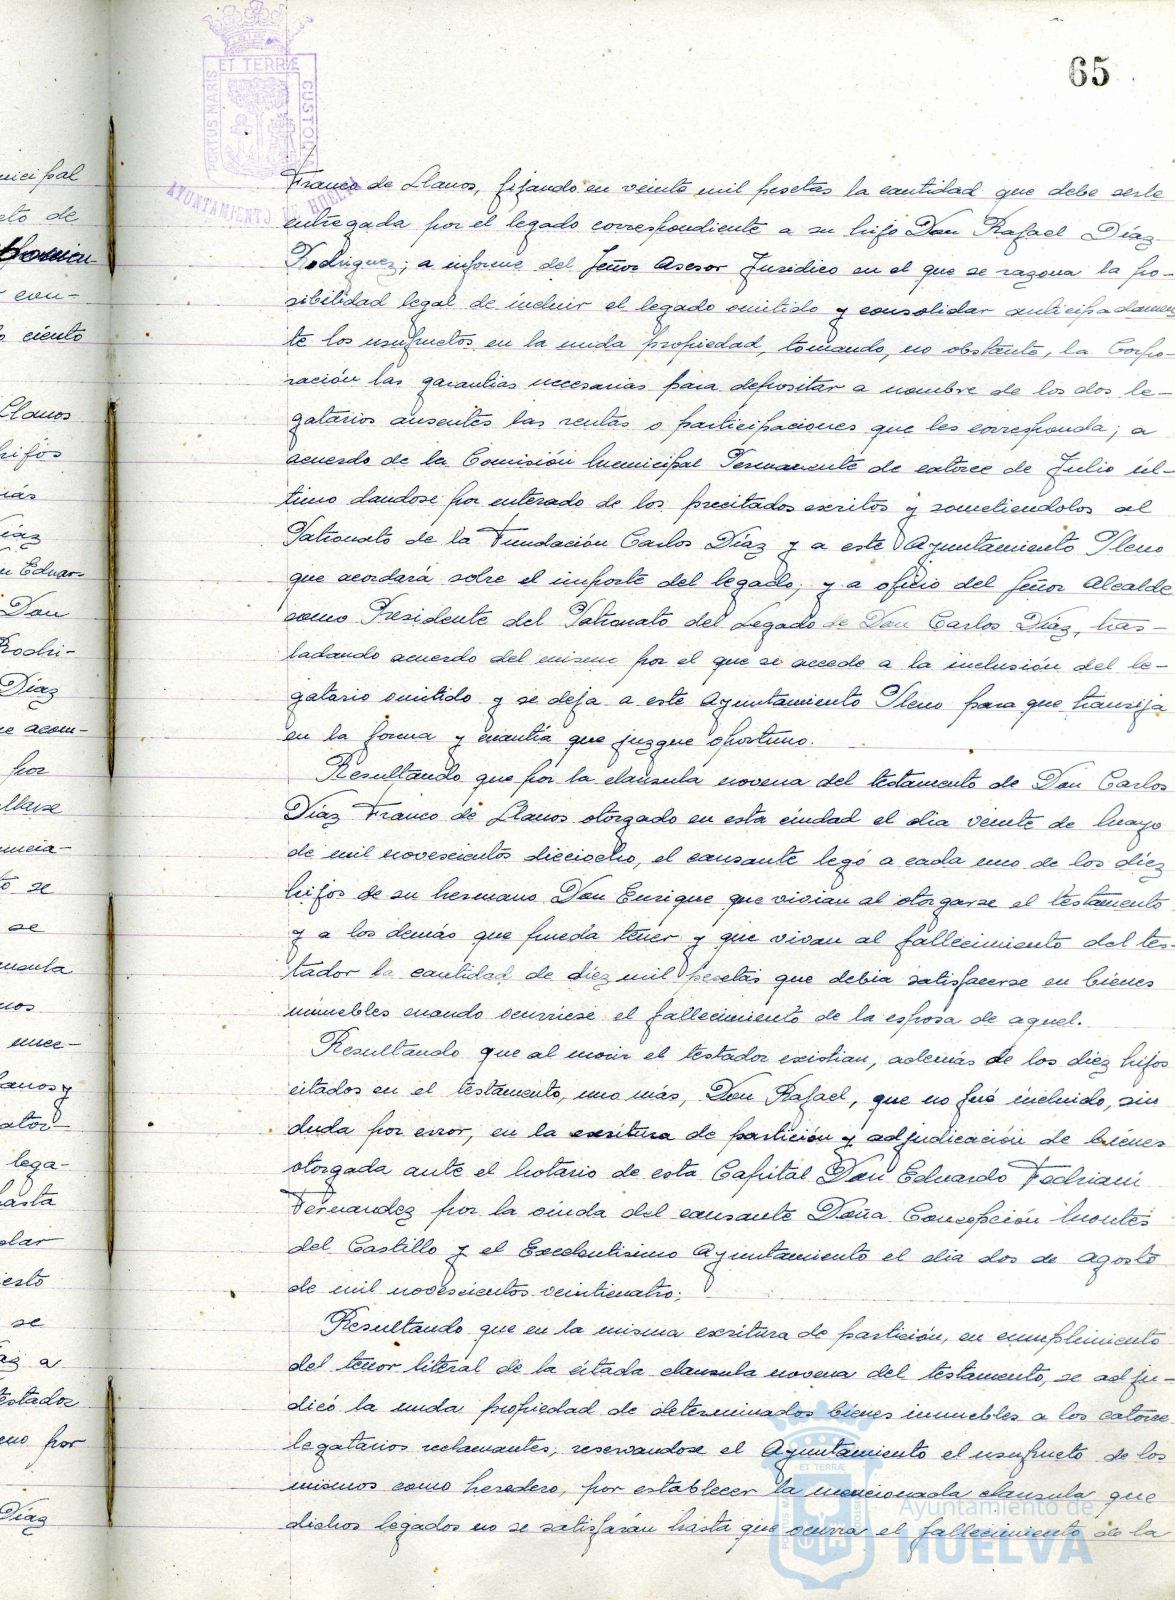 65
PORTUS MARIS ET TERRÆ CUSTODIA
AYUNTAMIENTO DE HUELVA
Franco de Llanos, fijando en veinte mil pesetas la cantidad que debe serle
entregada por el legado correspondiente a su hijo Don Rafael Díaz
Rodriguez; a informe del Señor Asesor Jurídico en el que se razona la po-
sibilidad legal de incluir el legado omitido y consolidar anticipadamen
te los usufructos en la nuda propiedad, tomando, no obstante, la Corpo-
ración las garantias necesarias para depositar a nombre de los dos le-
gatarios ausentes las rentas o participaciones que les corresponda; a
acuerdo de la Comisión Municipal Permanente de catorce de Julio úl-
timo dandose por enterado de los precitados escritos y sometiendolos al
Patronato de la Fundación Carlos Díaz y a este Ayuntamiento Pleno
que acordará sobre el importe del legado; y a oficio del Señor Alcalde
como Presidente del Patronato del Legado de Don Carlos Díaz, tras-
ladando acuerdo del mismo por el que se accede a la inclusión del le-
gatario omitido y se deja a este Ayuntamiento Pleno para que transija
en la forma y cuantía que juzgue oportuno.
Resultando que por la clausula novena del testamento de Don Carlos
Díaz Franco de Llanos otorgado en esta ciudad el dia veinte de Mayo
de mil novescientos dieciocho, el causante legó a cada uno de los diez
hijos de su hermano Don Enrique que vivian al otorgarse el testamento
y a los demás que pueda tener y que vivan al fallecimiento del tes-
tador la cantidad de diez mil pesetas que debia satisfacerse en bienes
inmuebles cuando ocurriese el fallecimiento de la esposa de aquel.
Resultando que al morir el testador existian, además de los diez hijos
citados en el testamento, uno más, Don Rafael, que no fué incluido, sin
duda por error, en la escritura de partición y adjudicación de bienes
otorgada ante el Notario de esta Capital Don Eduardo Fedriani
Fernandez por la viuda del causante Doña Concepción Montes
del Castillo y el Excelentisimo Ayuntamiento el dia dos de agosto
de mil novescientos veinticuatro;
Resultando que en la misma escritura de partición, en cumplimiento
del tenor literal de la citada clausula novena del testamento, se adju-
dicó la nuda propiedad de determinados bienes inmuebles a los catorce
legatarios reclamantes, reservandose el Ayuntamiento el usufructo de los
mismos como heredero, por establecer la mencionada clausula que
dichos legados no se satisfarán hasta que ocurra el fallecimiento de la
Ayuntamiento de
HUELVA